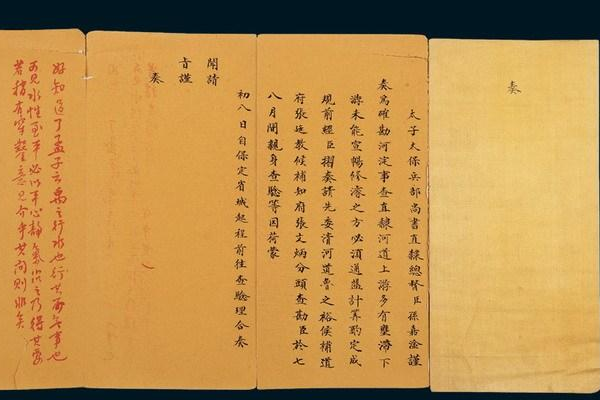 奏
太子太保兵部尚書直隸總督臣孫嘉淦謹
奏爲確勘河淀事查直隸河道上游多有壅滯下
游未能宣暢修濬之方必須通盤計算酌定成
規前經臣摺奏請先委清河道曹之裕候補道
府張廷敎候補知府張文炳分頭查勘臣於七
八月間親身查驗等因荷蒙
初八日自保定省城起程前往查驗理合奏
聞請
旨謹
奏
好知道了孟子云禹之行水也行其所無事也
可見水性至平必以平心靜氣治之乃得其要
若稍有穿鑿意見介乎其間則非矣